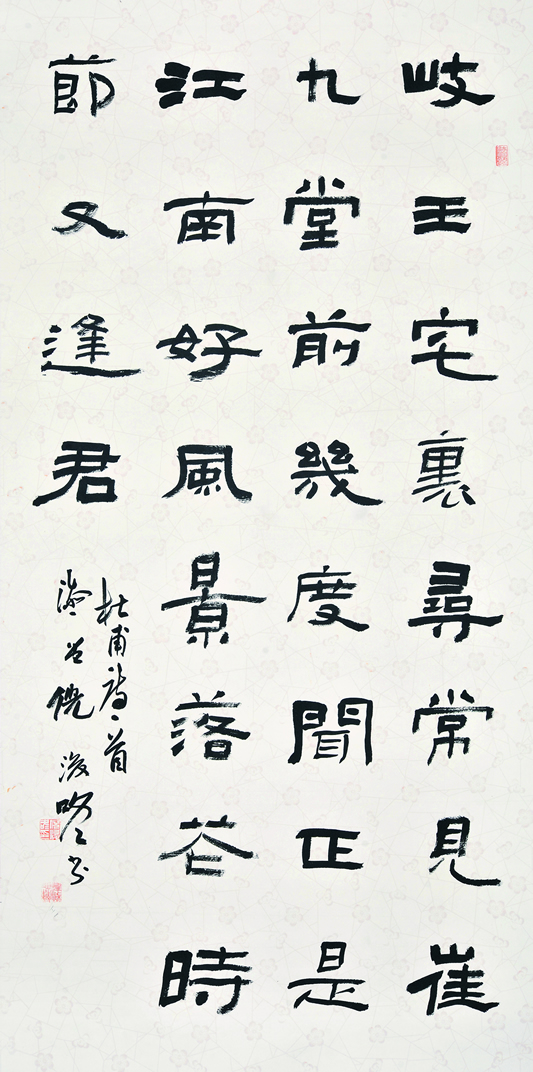 岐王宅裏尋常見崔
九堂前幾度聞正是
江南好風景落花時
節又逢君
杜甫詩一首